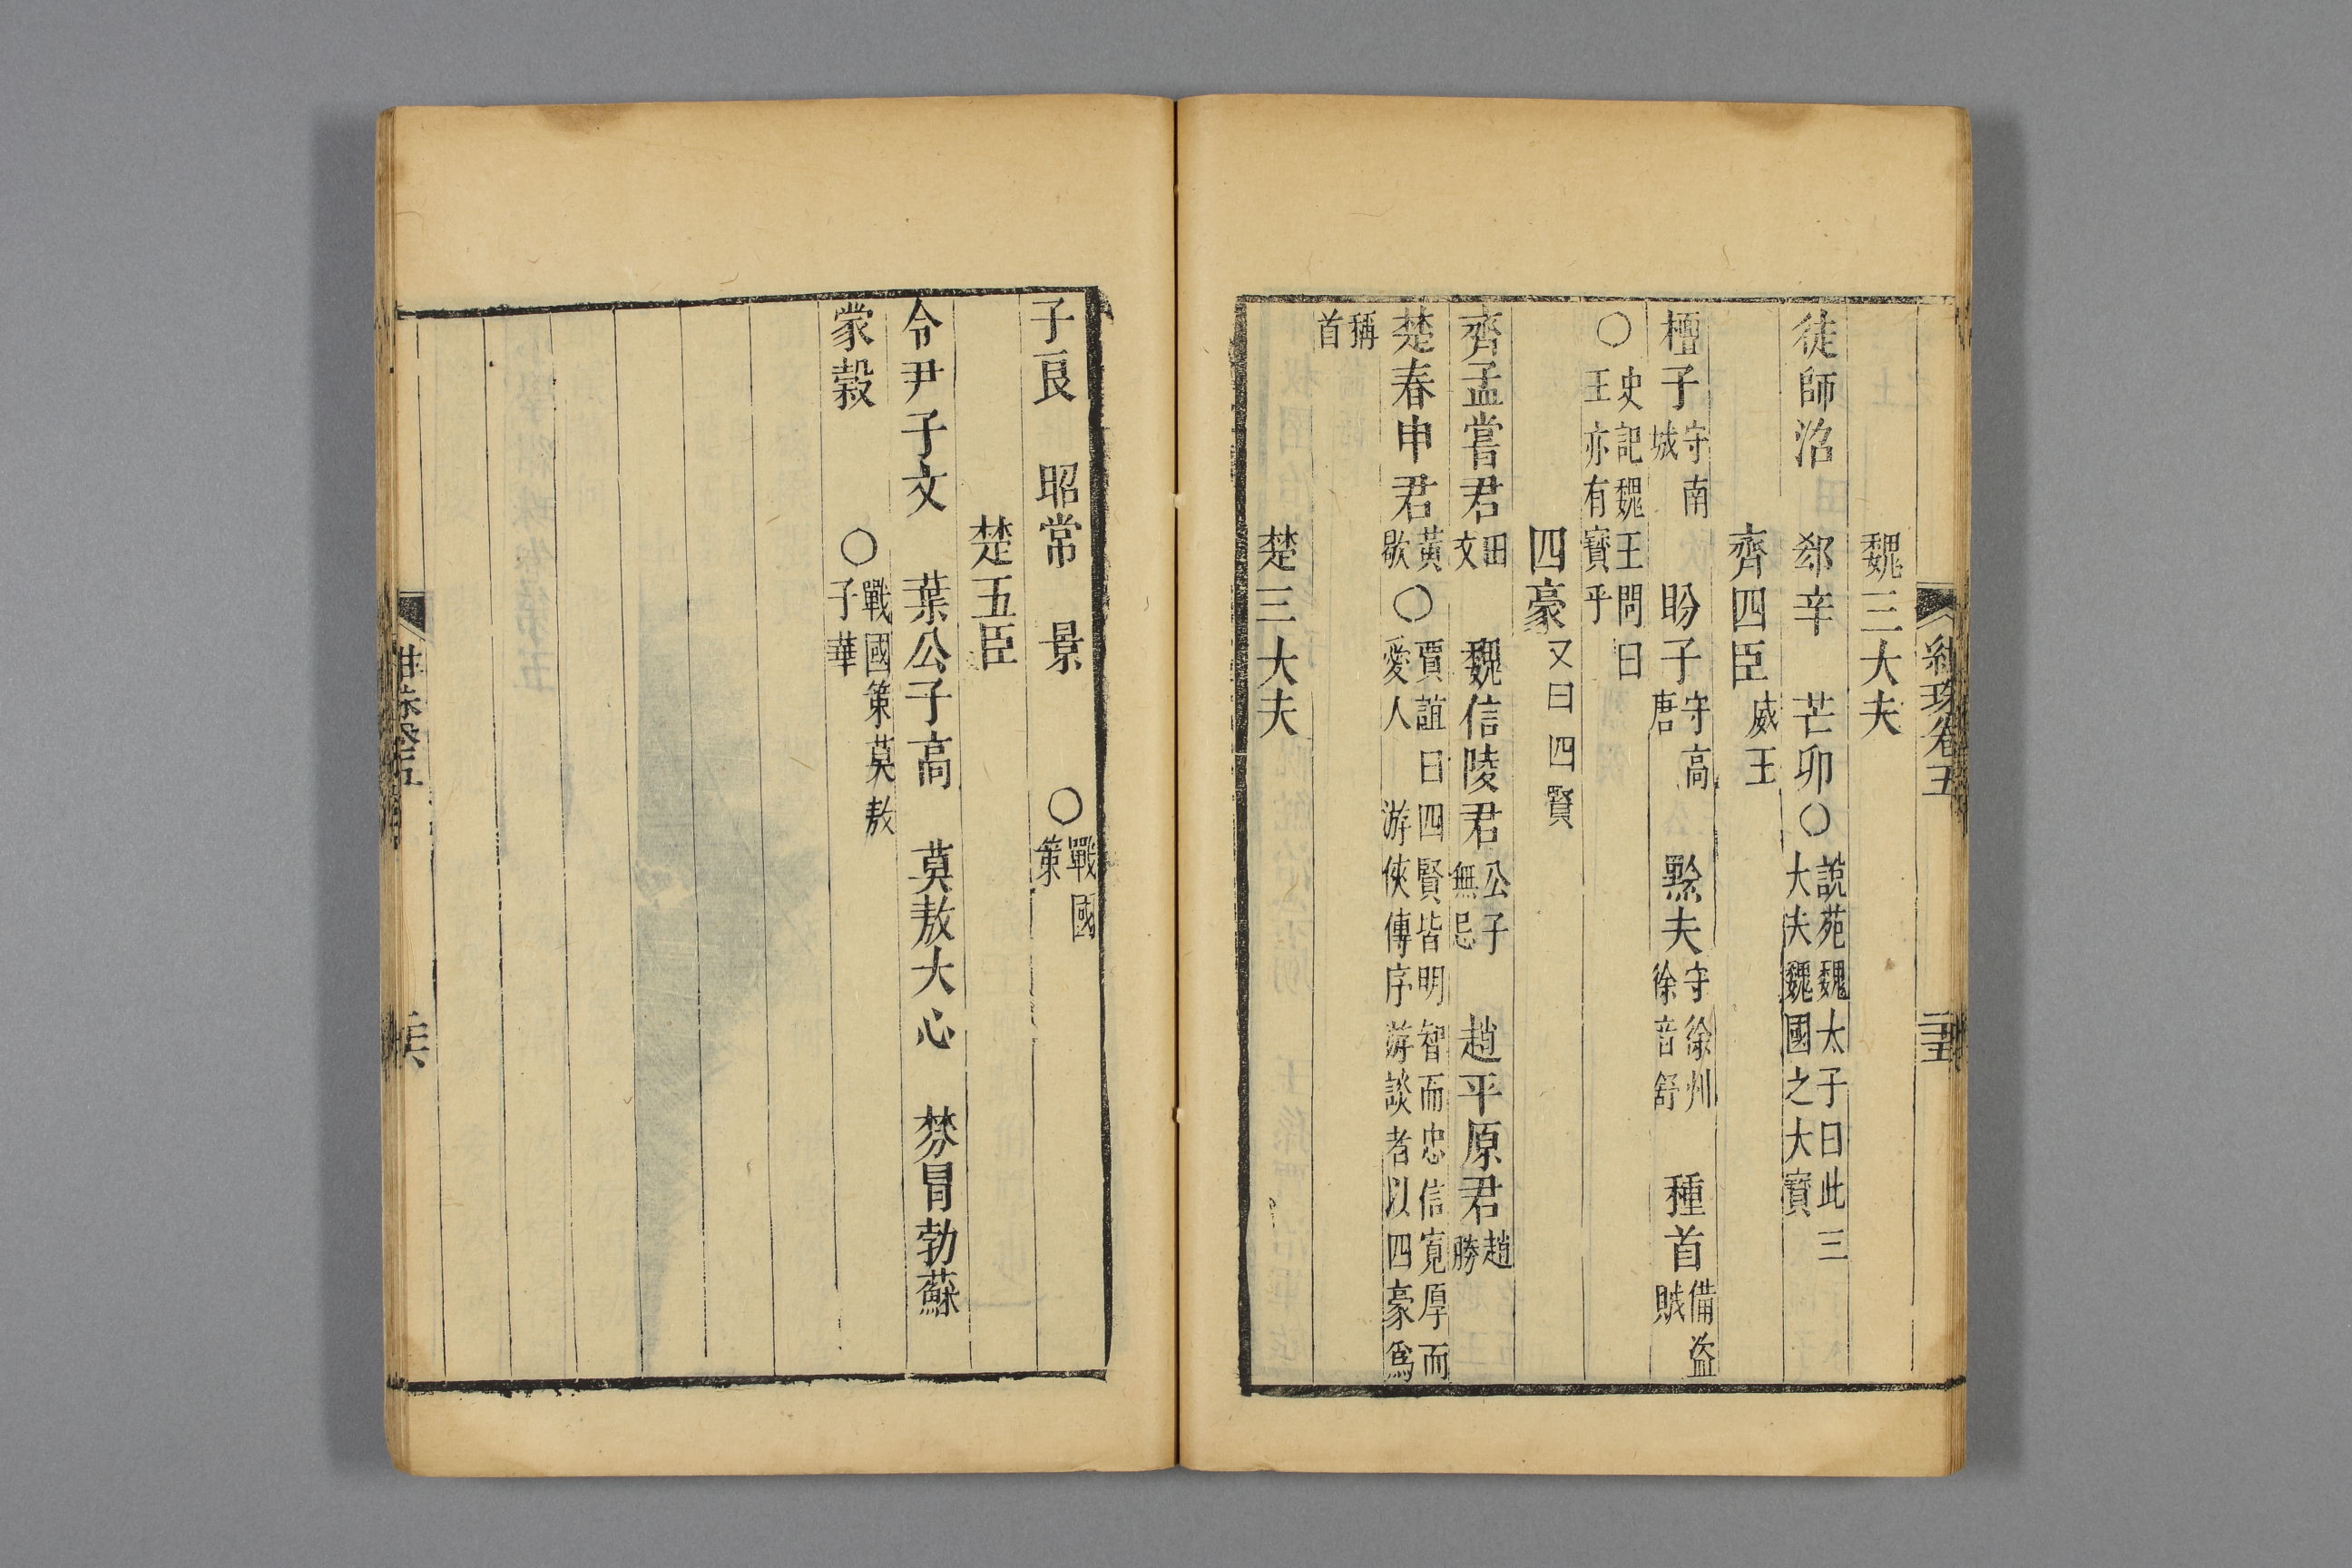 魏三大夫
徒師沼　郄辛　芒卯○說苑魏太子曰此三大夫魏國之大寳
齊四臣威王
檀子守南城　盼子守高唐　黔夫守徐州徐音舒　種首備盜賊
○史記魏王問曰王亦有寳乎
四豪又曰四賢
齊孟嘗君田文　魏信陵君公子無忌　趙平原君趙勝
楚春申君黃歇○賈誼曰四賢皆明智而忠信寛厚而愛人　游俠傳序游談者以四豪爲
稱首
楚三大夫
子良　昭常　景　○戰國策
楚五臣
令尹子文　葉公子高　莫敖大心　棼冒勃蘇
蒙榖　○戰國策莫敖子華